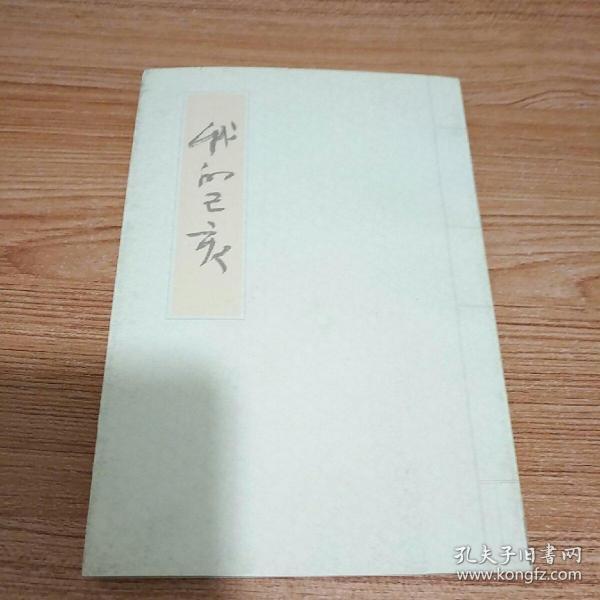 我的己亥
孔夫子旧书网
www.kongfz.com